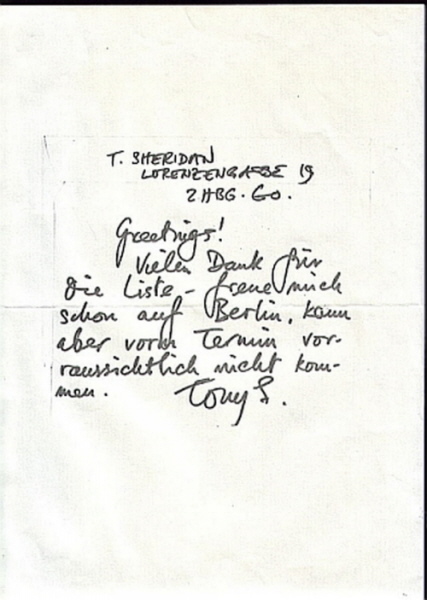 T. SHERIDAN
LORENZENGASSE 19
2 HBG. 60.
Greetings!
Vielen Dank für
die Liste - freue mich
schon auf Berlin, kann
aber vorm Termin vor-
raussichtlich nicht kom-
men. Tony S.